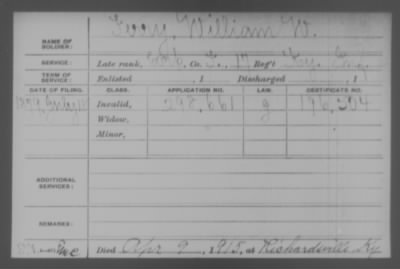 Terry, William W.
NAME OF SOLDIER:
SERVICE: Late rank, Co. 17 Reg't Ky.
TERM OF SERVICE: Enlisted , 1 Discharged , 1
DATE OF FILING. CLASS. APPLICATION NO. LAW. CERTIFICATE NO.
1879 July Invalid, 298.661 g 196.304
Widow,
Minor,
ADDITIONAL SERVICES:
REMARKS:
Died Apr 9, 1915, at Richardsville Ky